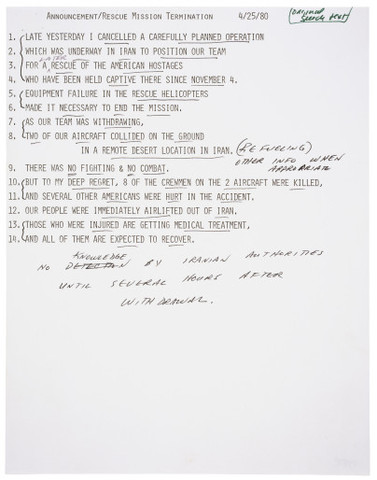 ANNOUNCEMENT/RESCUE MISSION TERMINATION 4/25/80
ORIGINAL
1. LATE YESTERDAY I CANCELLED A CAREFULLY PLANNED OPERATION
2. WHICH WAS UNDERWAY IN IRAN TO POSITION OUR TEAM
LATER
3. FOR A RESCUE OF THE AMERICAN HOSTAGES
4. WHO HAVE BEEN HELD CAPTIVE THERE SINCE NOVEMBER 4.
5. EQUIPMENT FAILURE IN THE RESCUE HELICOPTERS
6. MADE IT NECESSARY TO END THE MISSION.
7. AS OUR TEAM WAS WITHDRAWING,
8. TWO OF OUR AIRCRAFT COLLIDED ON THE GROUND
IN A REMOTE DESERT LOCATION IN IRAN. (REFUELING)
OTHER INFO WHEN
APPROPRIATE
9. THERE WAS NO FIGHTING & NO COMBAT.
10. BUT TO MY DEEP REGRET, 8 OF THE CREWMEN ON THE 2 AIRCRAFT WERE KILLED,
11. AND SEVERAL OTHER AMERICANS WERE HURT IN THE ACCIDENT.
12. OUR PEOPLE WERE IMMEDIATELY AIRLIFTED OUT OF IRAN.
13. THOSE WHO WERE INJURED ARE GETTING MEDICAL TREATMENT,
14. AND ALL OF THEM ARE EXPECTED TO RECOVER.
KNOWLEDGE
NO DETECTION BY IRANIAN AUTHORITIES
UNTIL SEVERAL HOURS AFTER
WITHDRAWAL.